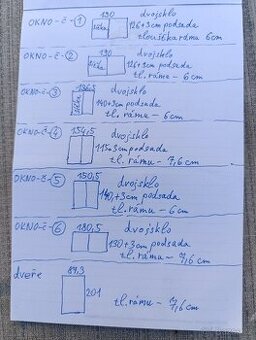 130
dvojsklo
OKNO-č-1
126+3cm podsada
tloušťka rámu 6cm
130
dvojsklo
OKNO-č-2
126+3cm podsada
tl. rámu - 6cm
136,5
dvojsklo
OKNO-č-3
140+3cm podsada
tl. rámu - 6cm
154,5
dvojsklo
OKNO-č-4
115+3cm podsada
tl. rámu - 7,6cm
150,5
dvojsklo
OKNO-č-5
140+3cm podsada
tl. rámu - 6cm
180,5
dvojsklo
OKNO-č-6
130+3cm podsada
tl. rámu - 7,6cm
dveře
89,3
201
tl. rámu - 7,6cm